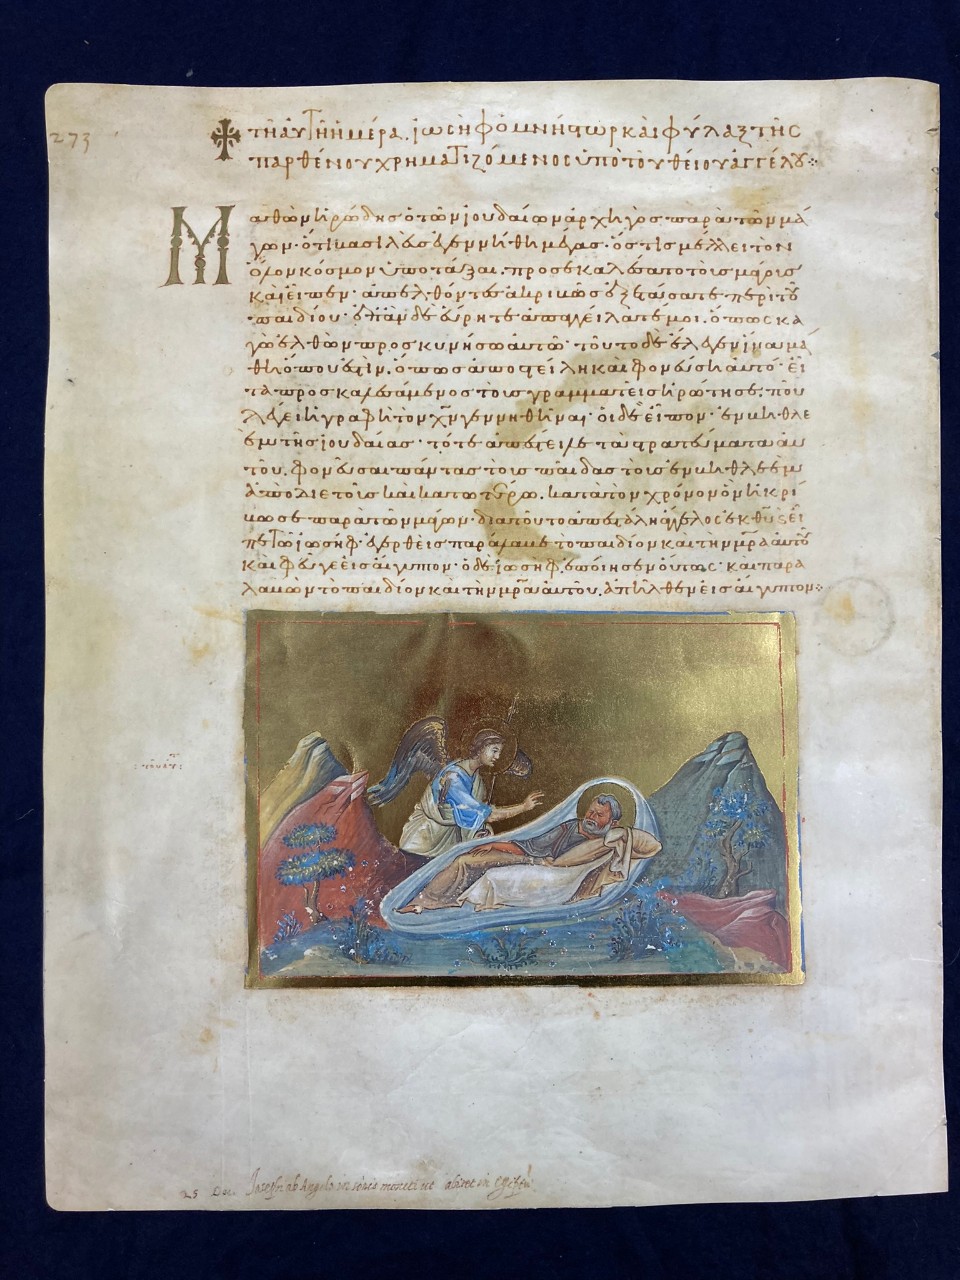 273
✝ τῇ αὐτῇ ἡμέρα. ἰωσὴφ ὁ μνήστωρ καὶ φύλαξ τῆς
παρθένου χρηματιζόμενος ὑπὸ τοῦ θείου ἀγγέλου⁘
Μαθὼν ἡρώδης ὁ τῶν ἰουδαίων ἀρχηγὸς παρὰ τῶν μά
γων· ὅτι βασιλεὺς ἐγεννήθη μέγας· ὅστις μέλλει τὸν
ὅλον κόσμον ὑποτάξαι. προσεκαλέσατο τοὺς μάγους
καὶ εἶπεν· ἀπελθόντες ἀκριβῶς ἐξετάσατε περὶ τοῦ
παιδίου· ἐπὰν δὲ εὕρητε ἀπαγγείλατέ μοι. ὅπως κα
γὼ ἐλθὼν προσκυνήσω αὐτῶ· τοῦτο δὲ ἔλεγεν ἵνα μά
θη ὅπου ἐστὶν. ὅπως ἀποστείλη καὶ φονεύση αὐτό· εἶ
τα προσκαλεσάμενος τοὺς γραμματεῖς ἠρώτησε· ποῦ
λέγει ἡ γραφὴ τὸν χν γεννηθῆναι· οἱ δὲ εἶπον· ἐν βηθλε
ὲμ τῆς ἰουδαίας· τότε ἀπέστειλε τὰ στρατεύματα αὐ
τοῦ. φονεῦσαι πάντας τοὺς παῖδας τοὺς ἐν βηθλεὲμ
ἀπὸ διετοῦς καὶ κατωτέρω. κατὰ τὸν χρόνον ὃν ἠκρί
βωσε παρὰ τῶν μάγων· διὰ τοῦτο ἀπεστάλη ἄγγελος ἐκ θυ εἰ
πεῖν τῶ ἰωσὴφ. ἐγερθεὶς παράλαβε τὸ παιδίον καὶ τὴν μρα αὐτοῦ
καὶ φεῦγε εἰς αἴγυπτον· ὁ δὲ ἰωσὴφ. ἐποίησεν οὕτως· καὶ παρα
λαβὼν τὸ παιδίον καὶ τὴν μρα αὐτοῦ. ἀπῆλθεν εἰς αἴγυπτον⁘
25 Dec. Joseph ab Angelo in somnis monetur ut abiret in Egiptu